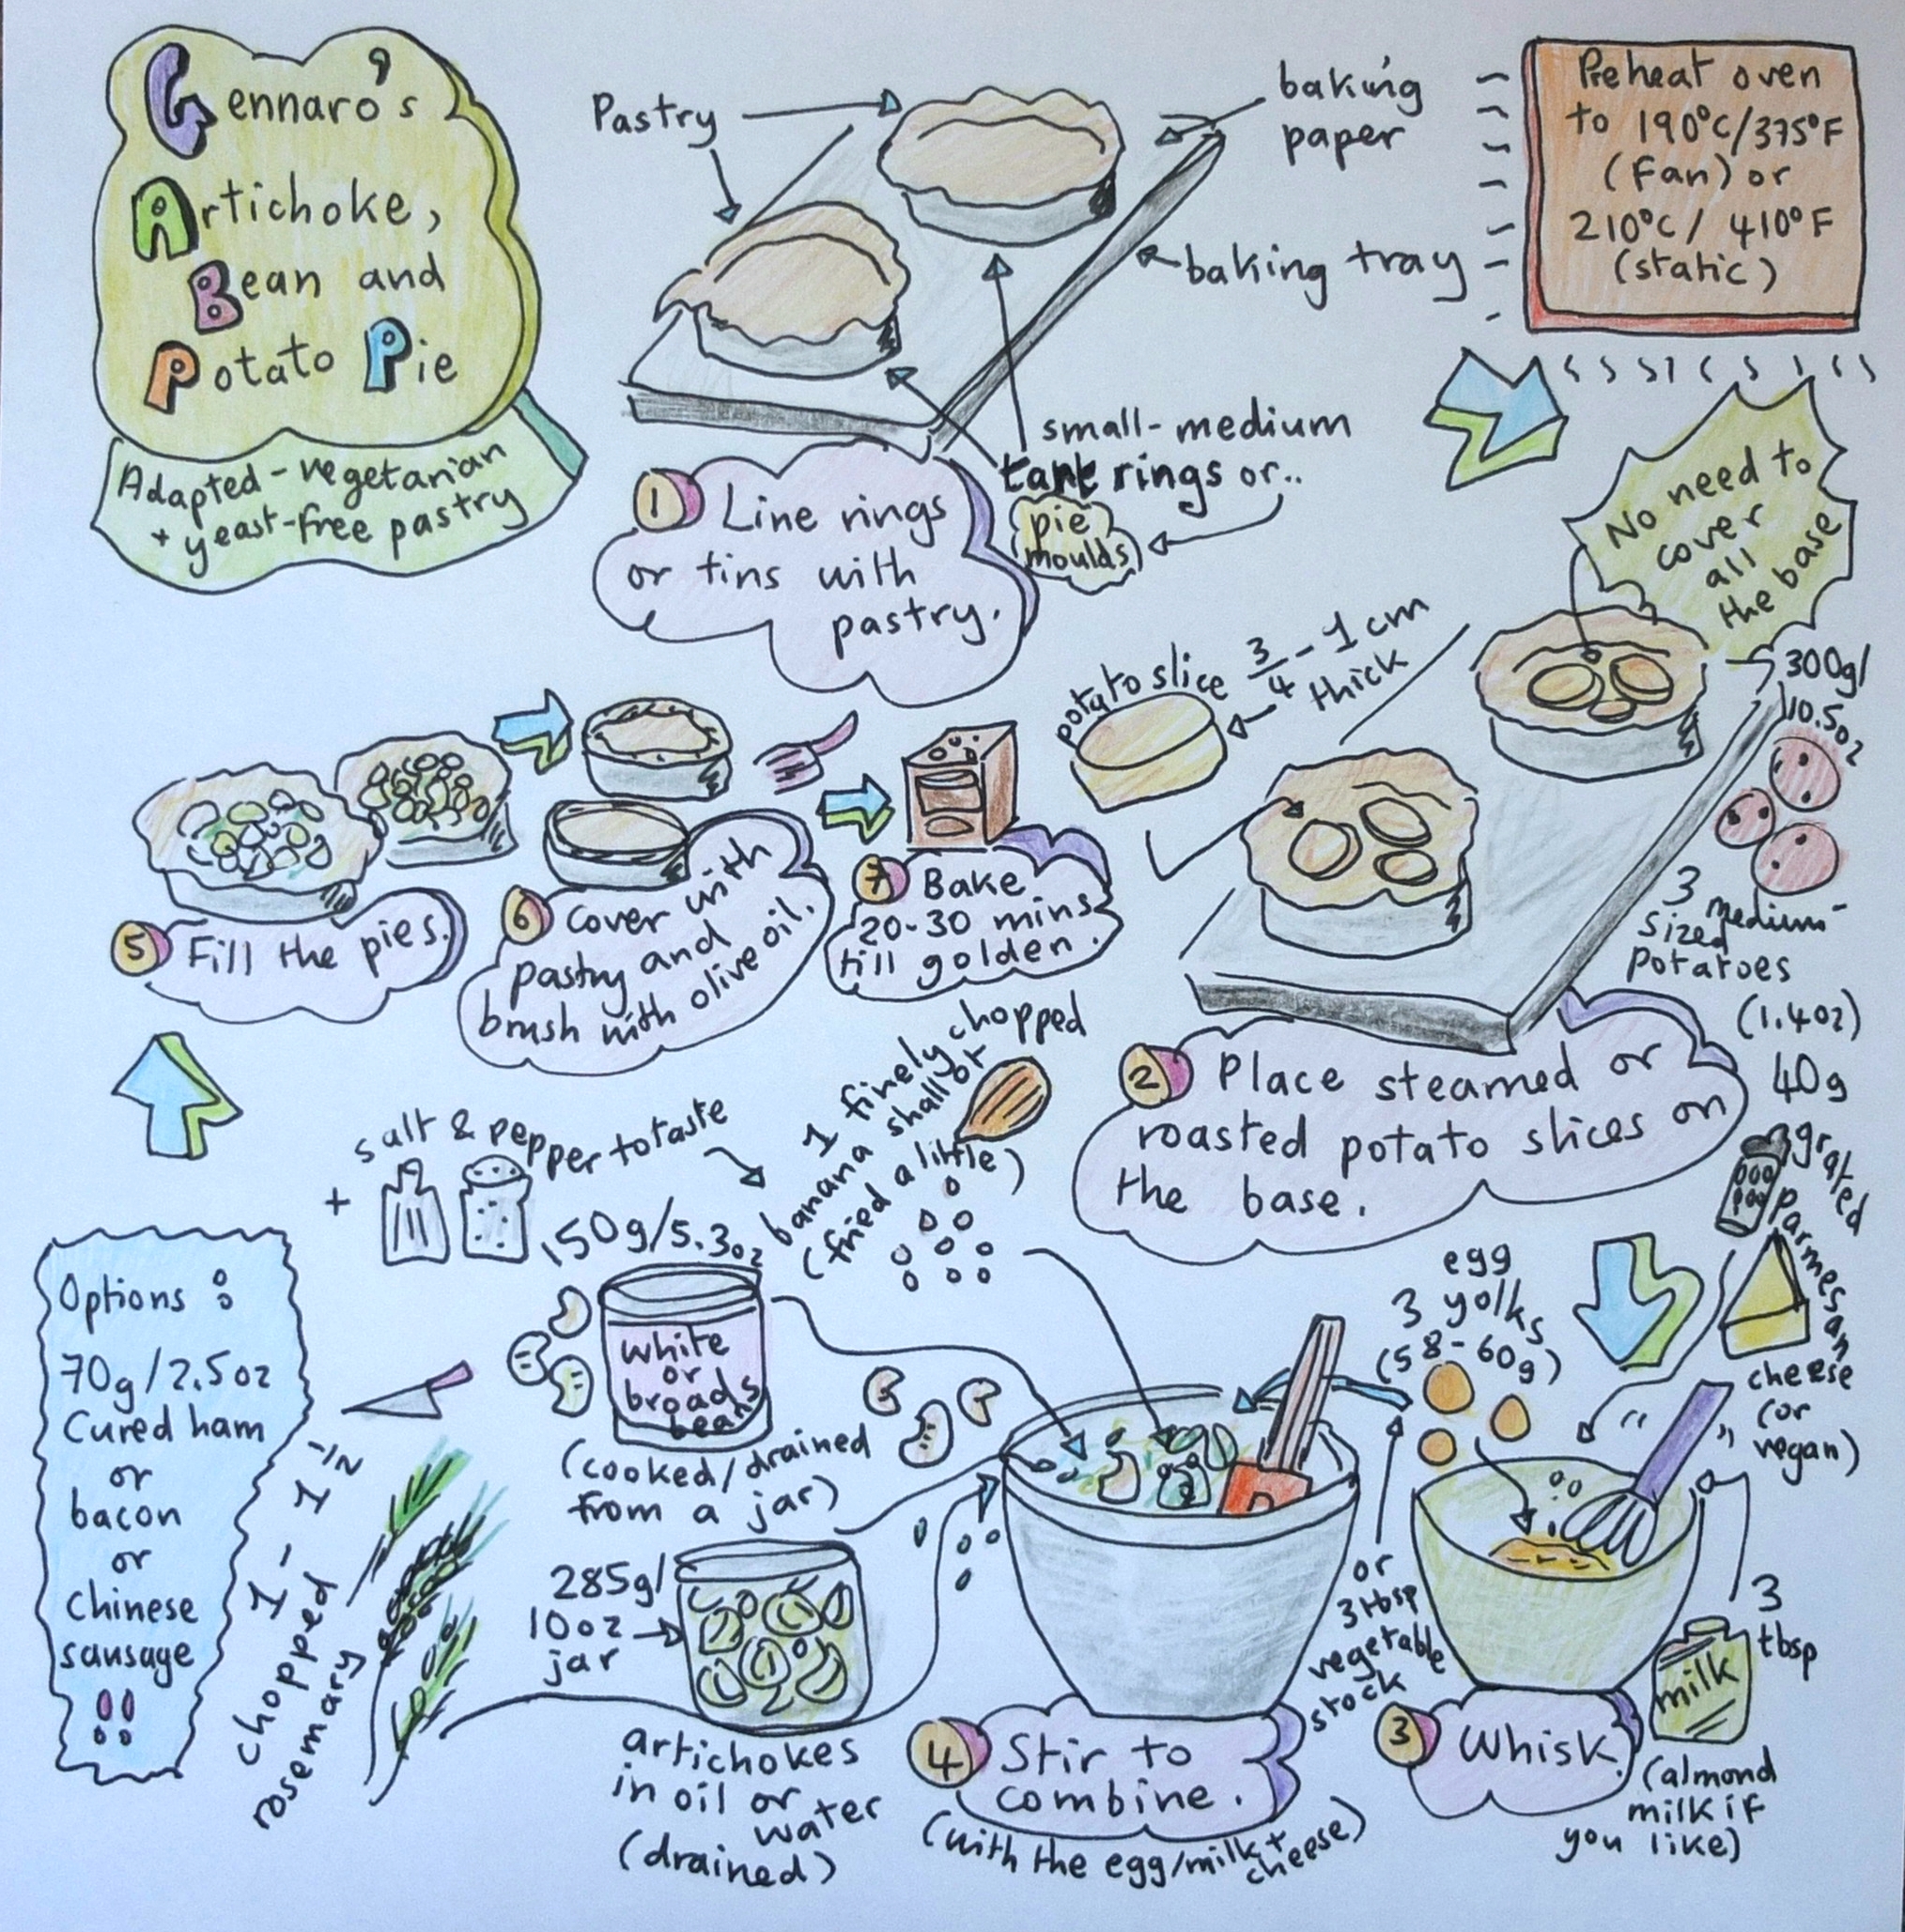 Gennaro's
Artichoke,
Bean and
Potato Pie
Adapted - vegetarian
+ yeast-free pastry
Pastry
baking
paper
baking tray
Preheat oven
to 190°C/375°F
(Fan) or
210°C/ 410°F
(static)
small-medium
tart rings or..
pie
moulds
1 Line rings
or tins with
pastry.
No need to
cover
all
the base
potato slice 3/4 - 1 cm
thick
300g/
10.5oz
3 medium-
sized
potatoes
2 Place steamed or
roasted potato slices on
the base.
(1.4oz)
40g
grated
parmesan
cheese
(or
vegan)
egg
3 yolks
(58-60g)
or
3 tbsp
vegetable
stock
3
tbsp
milk
(almond
milk if
you like)
3 Whisk.
4 Stir to
combine.
(with the egg/milk +
cheese)
1 finely chopped
banana shallot
(fried a little)
+ salt & pepper to taste
150g/5.3oz
white
or
broad
beans
(cooked/drained
from a jar)
285g/
10oz
jar
artichokes
in oil or
water
(drained)
1 - 1 1/2
chopped
rosemary
Options :
70g/2.5oz
Cured ham
or
bacon
or
Chinese
sausage
!!
5 Fill the pies.
6 Cover with
pastry and
brush with olive oil.
7 Bake
20-30 mins
till golden.